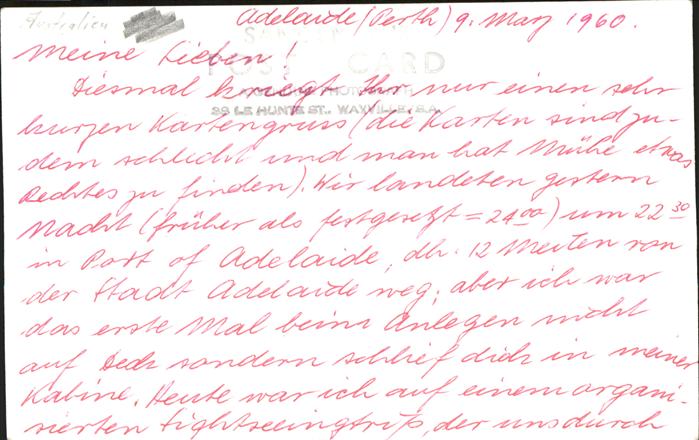 Australien
Adelaide (Perth) 9. März 1960.
Meine Lieben!
POST CARD
Diesmal kriegt Ihr nur einen sehr
39 LE HUNTE ST., WAYVILLE, S.A.
kurzen Kartengruss (die Karten sind zu-
dem schlecht und man hat Mühe etwas
Rechtes zu finden). Wir landeten gestern
Nacht (früher als festgesetzt = 24 00) um 22 30
in Port of Adelaide, dh. 12 Meilen von
der Stadt Adelaide weg; aber ich war
das erste Mal beim Anlegen nicht
auf Deck sondern schlief dick in meiner
Kabine. Heute war ich auf einem organi-
sierten Sightseeingtrip, der uns durch